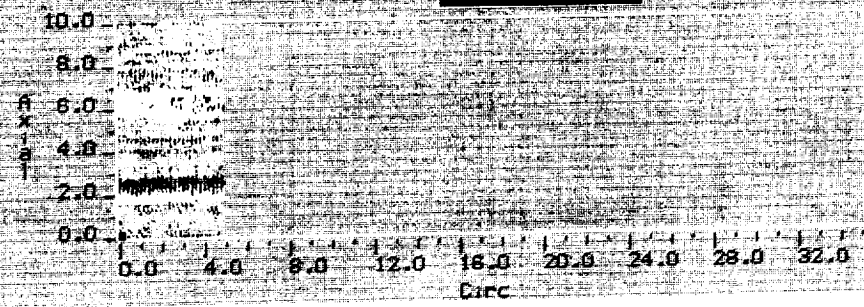 10.0
8.0
6.0
4.0
2.0
0.0
Axial
0.0 4.0 8.0 12.0 16.0 20.0 24.0 28.0 32.0
Circ